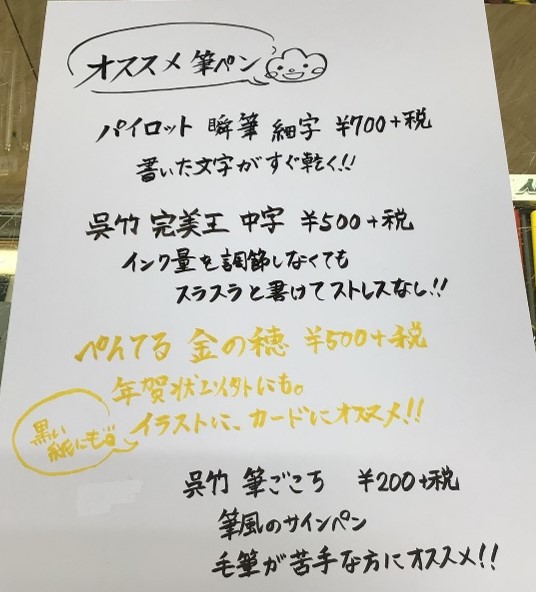 オススメ 筆ペン
パイロット 瞬筆 細字 ¥700+税
書いた文字がすぐ乾く!!
呉竹 完美王 中字 ¥500+税
インク量を調節しなくても
スラスラと書けてストレスなし!!
ぺんてる 金の穂 ¥500+税
年賀状以外にも。
イラストに、カードにオススメ!!
黒い
紙にも
呉竹 筆ごこち ¥200+税
筆風のサインペン
毛筆が苦手な方にオススメ!!